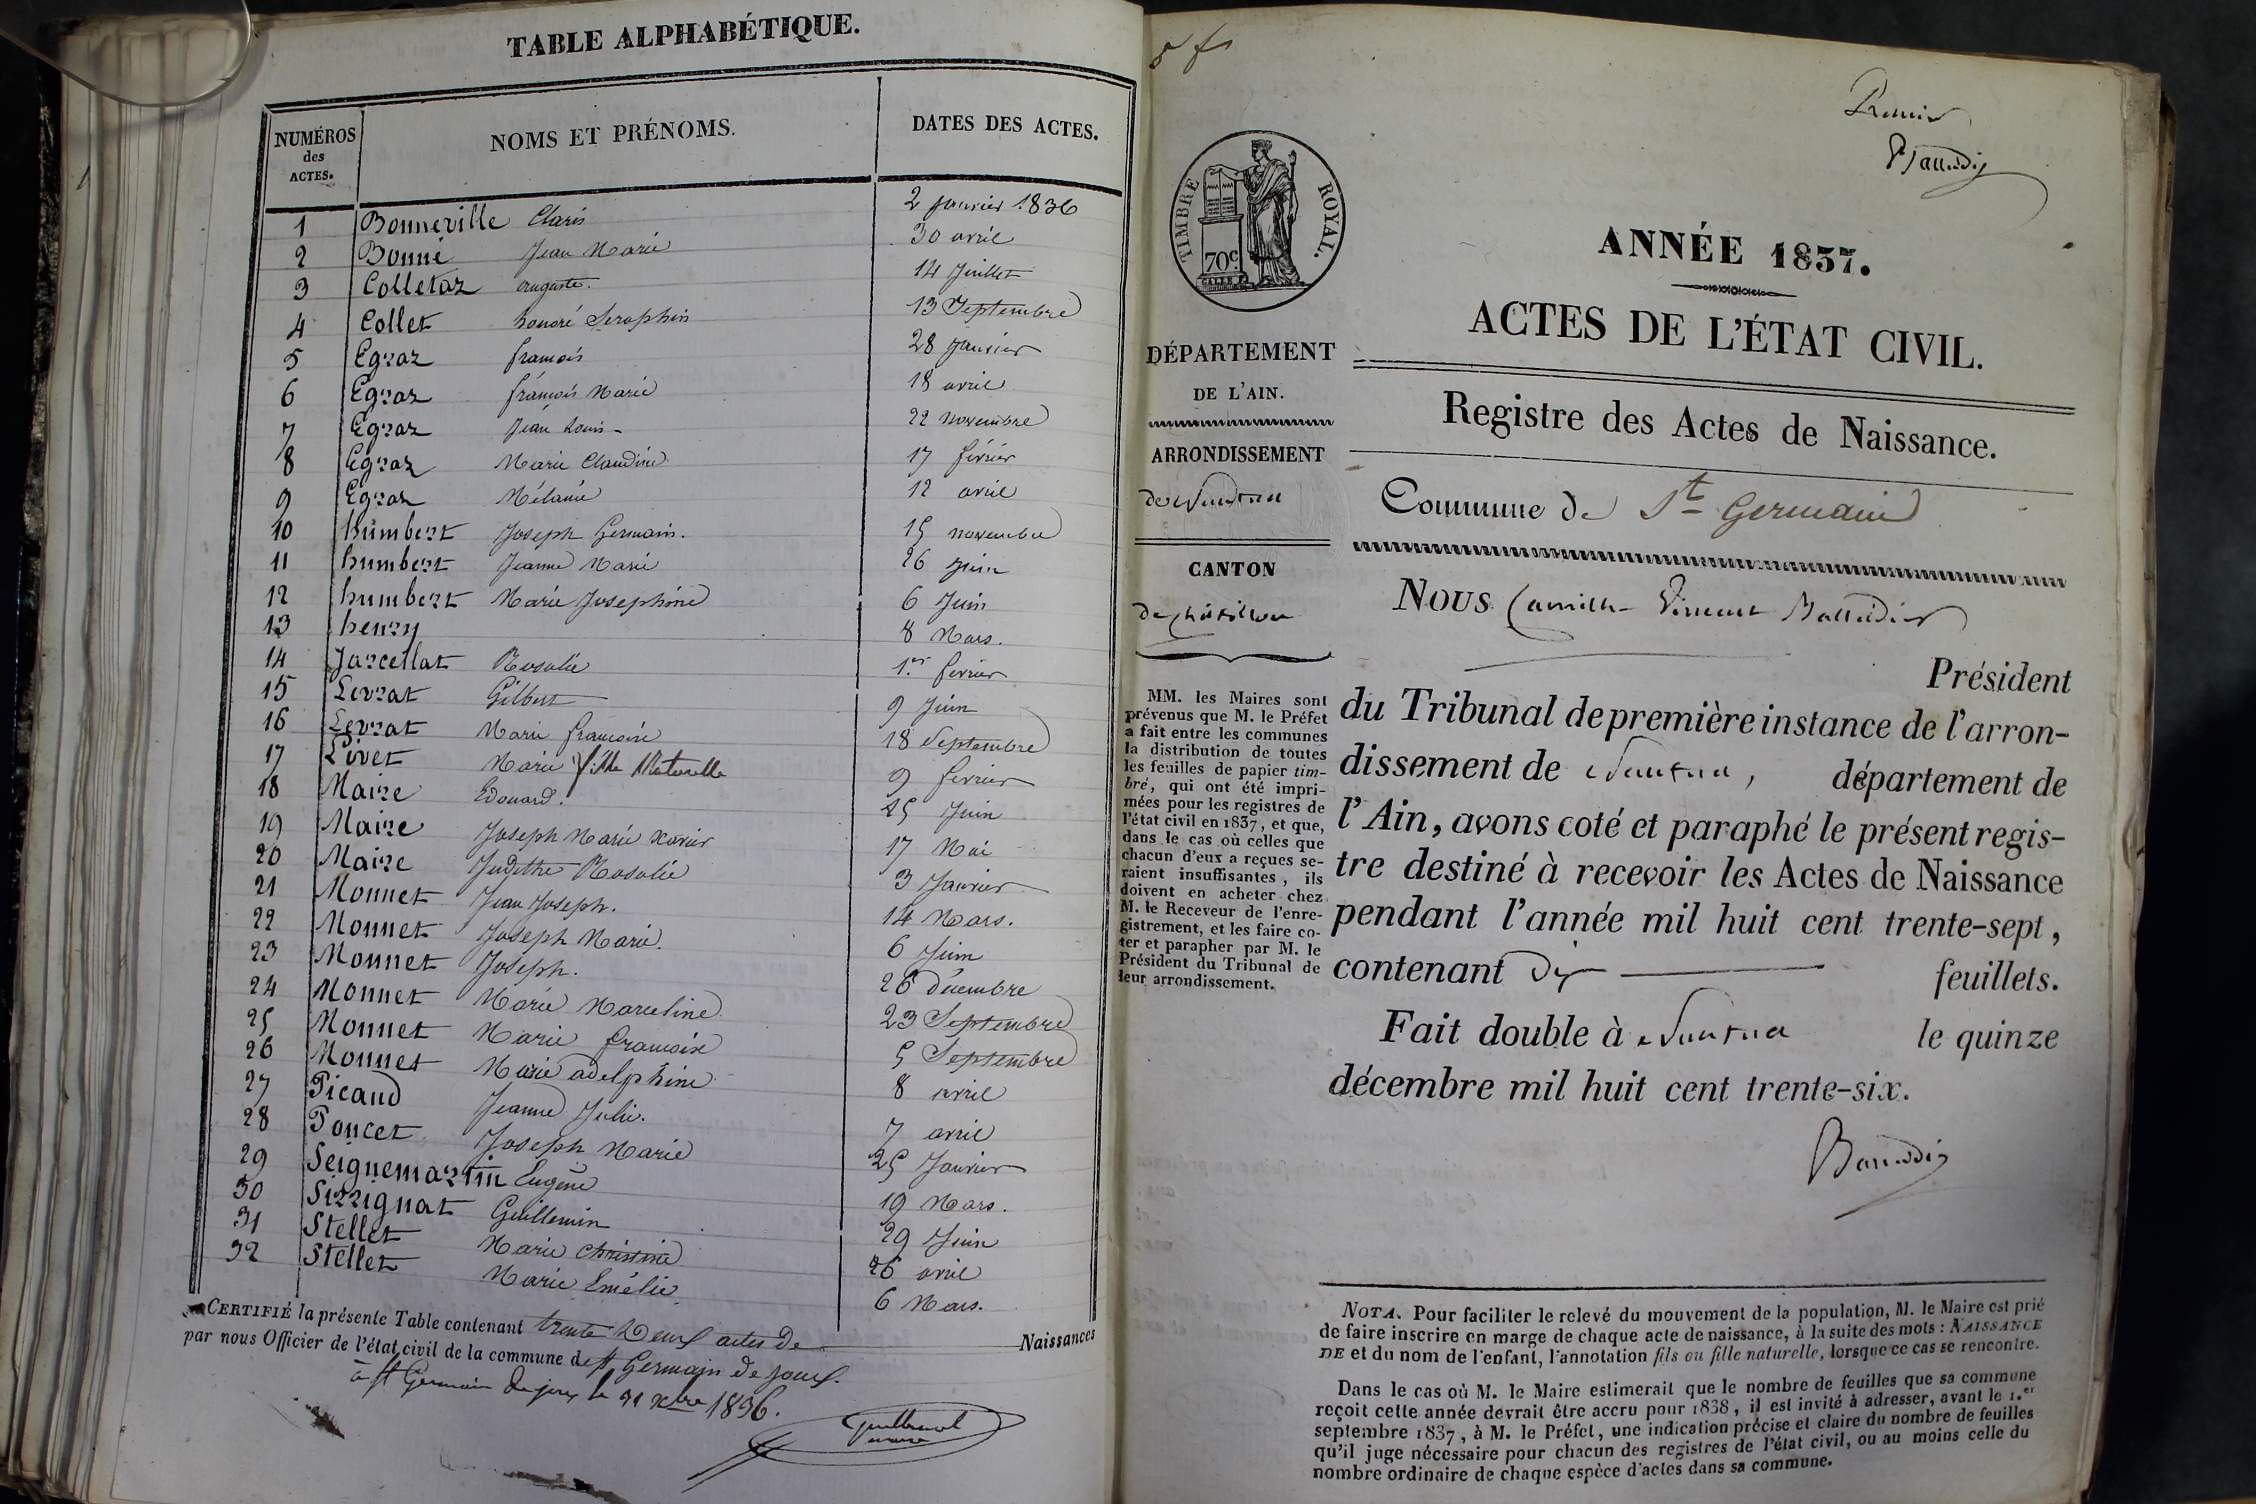 TABLE ALPHABÉTIQUE.
NUMÉROS des ACTES. NOMS ET PRÉNOMS. DATES DES ACTES.
1 Bonneville Claris 2 Janvier 1836
2 Bonne Jean Marie 30 avril
3 Colletaz auguste. 14 Juillet
4 Collet honoré Seraphin 13 Septembre
5 Egraz françois 28 Janvier
6 Egraz françois Marie 18 avril
7 Egraz Jean Louis 22 novembre
8 Egraz Marie Claudine 17 février
9 Egraz Mélanie 12 avril
10 humbert Joseph Germain. 15 novembre
11 humbert Jeanne Marie 26 Juin
12 humbert Marie Josephine 6 Juin
13 henry 8 Mars.
14 Jarcellat Rosalie 1.er fevrier
15 Levrat Gilbert 9 Juin
16 Levrat Marie françoise 18 Septembre
17 Livet Marie fille Naturelle 9 fevrier
18 Maire Edouard. 25 Juin
19 Maire Joseph Marie Xavier 17 Mai
20 Maire Judithe Rosalie 3 Janvier
21 Monnet Jean Joseph. 14 Mars.
22 Monnet Joseph Marie. 6 Juin
23 Monnet Joseph. 26 Décembre
24 Monnet Marie Marceline 23 Septembre
25 Monnet Marie françoise 5 Septembre
26 Monnet Marie adelphine 8 avril
27 Picaud Jeanne Julie. 7 avril
28 Poncet Joseph Marie 25 Janvier
29 Seignemartin Eugène 19 Mars.
30 Sirrignat Guillemin 29 Juin
31 Stellet Marie Christine 26 avril
32 Stellet Marie Emélie 6 Mars.
CERTIFIÉ la présente Table contenant trente Deux actes de Naissances
par nous Officier de l'état civil de la commune de St Germain de Joux.
à St Germain de joux le 31 Xbre 1836.
5 f
TIMBRE ROYAL.
70c
DÉPARTEMENT
DE L'AIN.
ARRONDISSEMENT
de Nantua
CANTON
de Châtillon
MM. les Maires sont
prévenus que M. le Préfet
a fait entre les communes
la distribution de toutes
les feuilles de papier tim-
bré, qui ont été impri-
mées pour les registres de
l'état civil en 1837, et que,
dans le cas où celles que
chacun d'eux a reçues se-
raient insuffisantes, ils
doivent en acheter chez
M. le Receveur de l'enre-
gistrement, et les faire co-
ter et parapher par M. le
Président du Tribunal de
leur arrondissement.
Premier
ANNÉE 1837.
ACTES DE L'ÉTAT CIVIL.
Registre des Actes de Naissance.
Commune de St Germain
NOUS Camille Vincent
Président
du Tribunal de première instance de l'arron-
dissement de Nantua, département de
l'Ain, avons coté et paraphé le présent regis-
tre destiné à recevoir les Actes de Naissance
pendant l'année mil huit cent trente-sept,
contenant Dix feuillets.
Fait double à Nantua le quinze
décembre mil huit cent trente-six.
NOTA. Pour faciliter le relevé du mouvement de la population, M. le Maire est prié
de faire inscrire en marge de chaque acte de naissance, à la suite des mots : NAISSANCE
DE et du nom de l'enfant, l'annotation fils ou fille naturelle, lorsque ce cas se rencontre.
Dans le cas où M. le Maire estimerait que le nombre de feuilles que sa commune
reçoit cette année devrait être accru pour 1838, il est invité à adresser, avant le 1.er
septembre 1837, à M. le Préfet, une indication précise et claire du nombre de feuilles
qu'il juge nécessaire pour chacun des registres de l'état civil, ou au moins celle du
nombre ordinaire de chaque espèce d'actes dans sa commune.